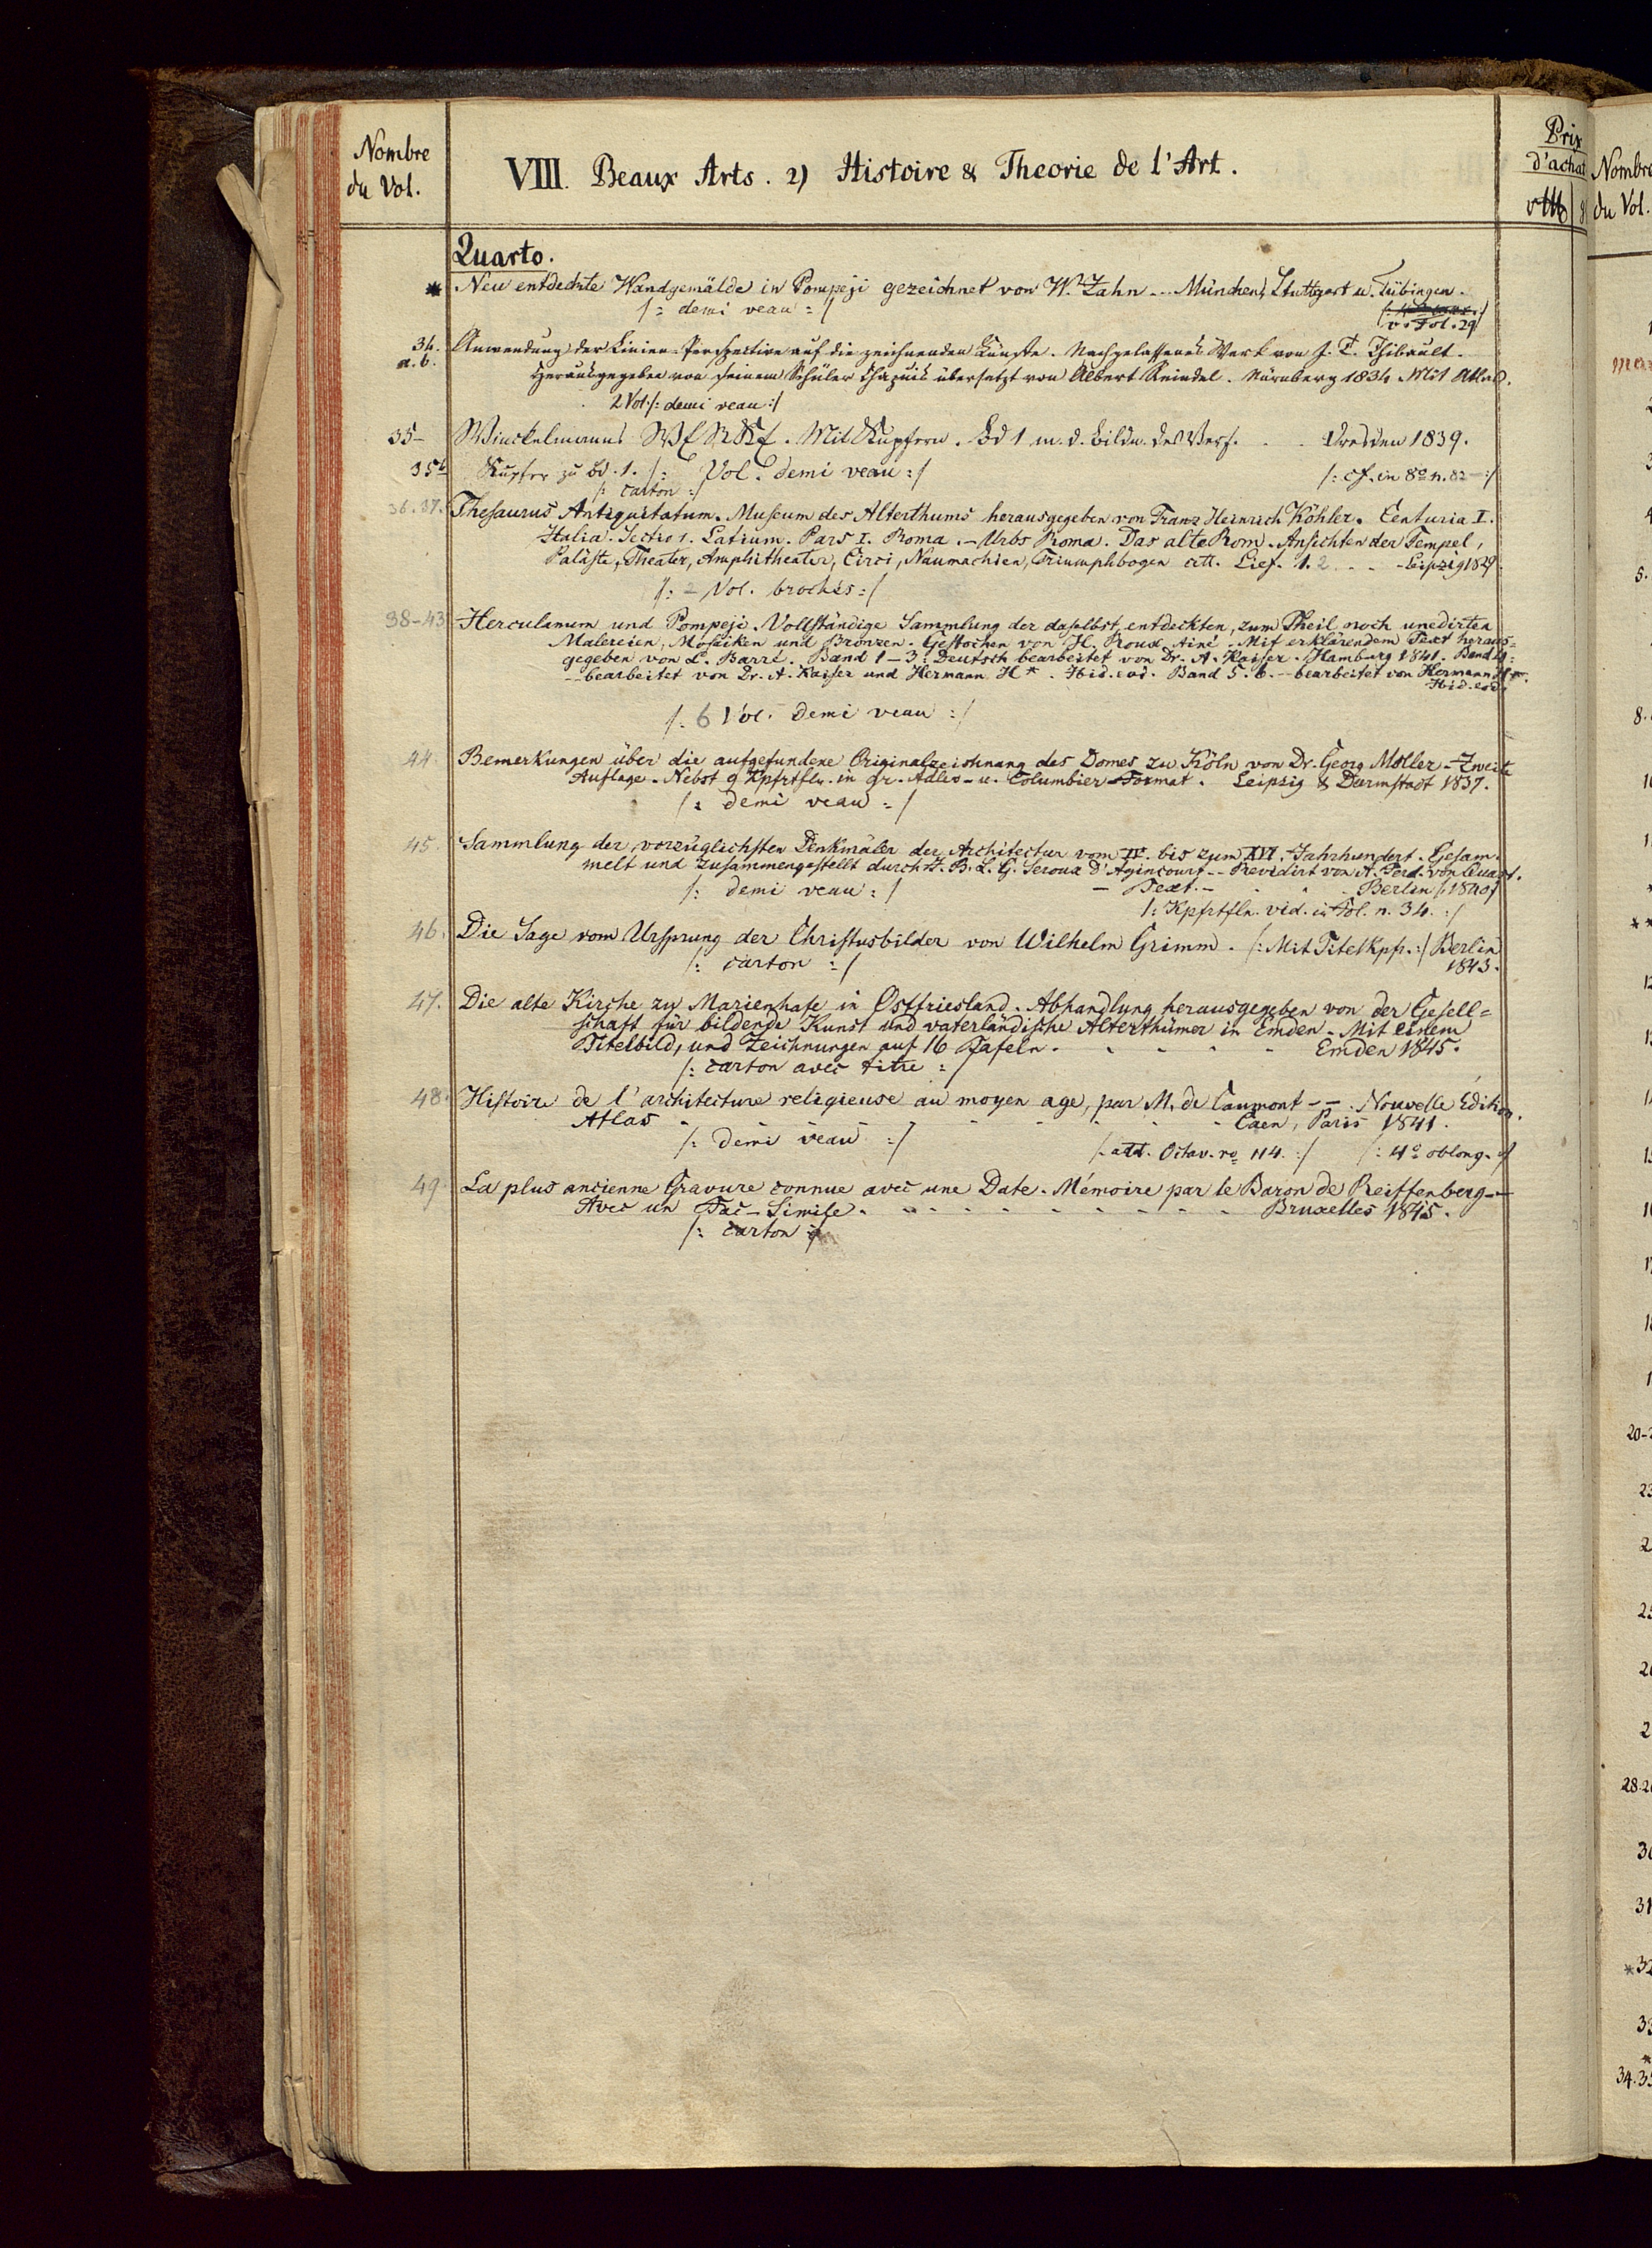 Nombre
du Vol.
VIII. Beaux Arts. 2) Histoire & Theorie de l'Art.
Prix
d'achat
Quarto.
* Neu entdeckte Wandgemälde in Pompeji gezeichnet von W. Zahn -- München, Stuttgart u. Tübingen.
/: demi veau :/
v. Fol. 29
34. a. b. Anwendung der Linien-Perspective auf die zeichnenden Künste. Nachgelassenes Werk von J. T. Thibault.
Herausgegeben von seinem Schüler Chapuis übersetzt von Albert Reindel. Nürnberg 1834. Mit Atlas.
2 Vol. /: demi veau :/
35 Winckelmanns Mit Kupfern. Bd 1 m. d. Bildn. des Verf. . . Dresden 1839.
35b Kupfer zu Bd. 1. /: Vol. demi veau :/ /: cf. in 8º n. 82 :/
/: carton :/
36. 37. Thesaurus Antiquitatum. Museum des Alterthums herausgegeben von Franz Heinrich Köhler. Centuria I.
Italia. Sectio 1. Latium. Pars I. Roma. - Urbs Roma. Das alte Rom. Ansichten der Tempel,
Paläste, Theater, Amphitheater, Circi, Naumachien, Triumphbogen ett. Lief. 1. 2 . . - Leipzig 1829.
/: 2 Vol. brochés :/
38-43 Herculanum und Pompeji. Vollständige Sammlung der daselbst entdeckten, zum Theil noch unedirten
Malereien, Mosaiken und Bronzen. Gestochen von H. Roux Ainé. Mit erklärendem Text heraus=
gegeben von L. Barré. Band 1-3. Deutsch bearbeitet von Dr. A. Kaiser. Hamburg 1841. Band 4:
-- bearbeitet von Dr. A. Kaiser und Hermann H*. Ibid. eod. Band 5. 6. -- bearbeitet von Hermann H*.
Ibid. eod.
/: 6 Vol. demi veau :/
44. Bemerkungen über die aufgefundene Originalzeichnung des Domes zu Köln von Dr. Georg Moller - Zweite
Auflage. Nebst 9 Kpfrtfln. in gr. Adler- u. Columbier-Format. Leipzig & Darmstadt 1837.
/: demi veau :/
45. Sammlung der vorzüglichsten Denkmäler der Architectur vom IV. bis zum XVI. Jahrhundert. Gesam=
melt und zusammengestellt durch J. B. L. G. Seroux D'Agincourt -- Revidirt von A. Ferd. von Quast.
/: demi veau :/ - Text. - - - Berlin /: 1840 :/
/: Kpfrtfln. vid. in Fol. n. 34. :/
46. Die Sage vom Ursprung der Christusbilder von Wilhelm Grimm. /: Mit Titelkpfr. :/ Berlin
/: carton :/ 1843.
47. Die alte Kirche zu Marienhafe in Ostfriesland. Abhandlung herausgegeben von der Gesell=
schaft für bildende Kunst und vaterländische Alterthümer in Emden. Mit einem
Titelbild, und Zeichnungen auf 16 Tafeln. - - - - - Emden 1845.
/: carton avec titre :/
48. Histoire de l'architecture religieuse au moyen age, par M. de Caumont -- . Nouvelle Édition.
Atlas - - - - - - - - Caen, Paris 1841.
/: demi veau :/ /: add. Octav. no 114. :/ /: 4º oblong. :/
49. La plus ancienne Gravure connue avec une Date. Mémoire par le Baron de Reiffenberg --
Avec un Fac-Simile. - - - - - - - - Bruxelles 1845.
/: carton :/
Nombre
du Vol.